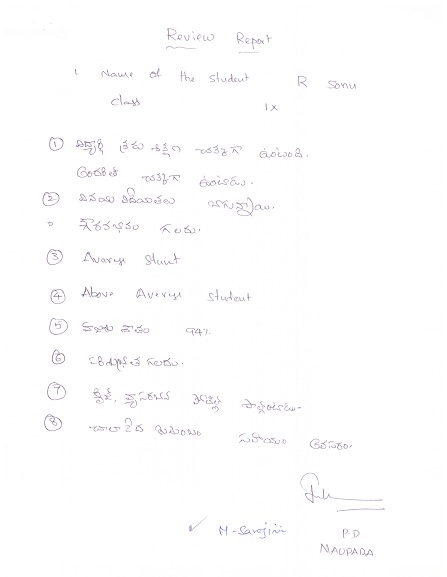 Review Report
1 Name of the student R Sonu
class IX
① విద్యార్థి క్రమ శిక్షణ చక్కగా ఉంటుంది.
అందరితో చక్కగా ఉంటాడు.
② వినయ విధేయతలు బాగున్నాయి.
గౌరవభావం గలదు.
③ Avarage
④ Above Average Student
⑤ హాజరు శాతం 94%
⑥ పరిశుభ్రత గలదు.
⑦ క్విజ్, వ్యాసరచన పాల్గొంటాడు.
⑧ చాలా పేద కుటుంబం సహాయం అవసరం.
M-Sarojini P.D
NAUPADA